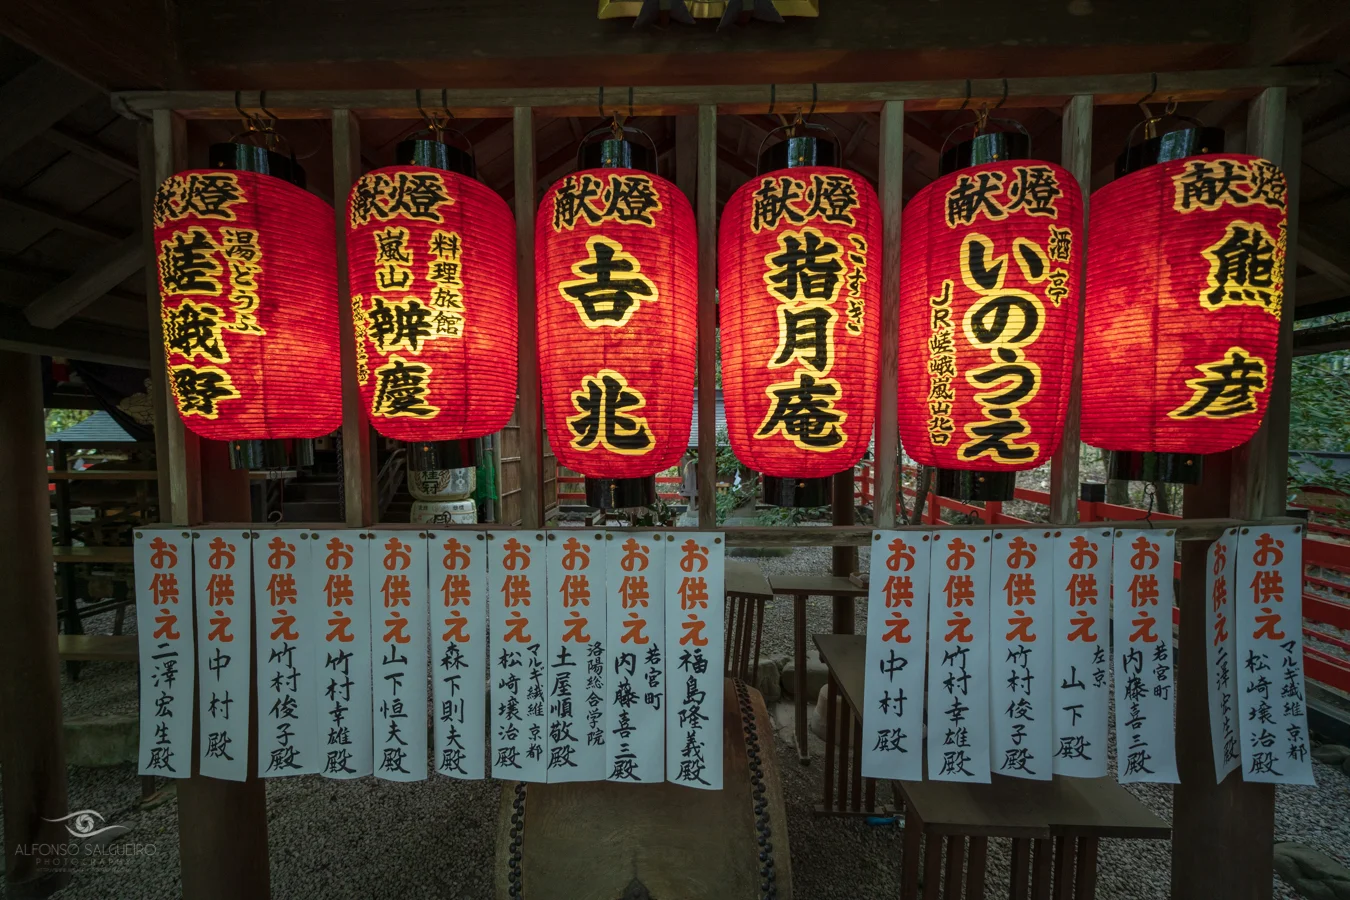 献燈
湯どうふ
嵯峨野
献燈
料理旅館
嵐山
辨慶
献燈
𠮷北
献燈
こすぎ
指月庵
献燈
酒亭
いのうえ
JR嵯峨嵐山北口
献燈
熊彦
お供え 二澤宏生殿
お供え 中村殿
お供え 竹村俊子殿
お供え 竹村幸雄殿
お供え 山下恒夫殿
お供え 森下則夫殿
お供え マルキ繊維 京都 松崎壌治殿
お供え 洛陽総合学院 土屋順敬殿
お供え 若宮町 内藤喜三殿
お供え 福島隆義殿
お供え 中村殿
お供え 竹村幸雄殿
お供え 竹村俊子殿
お供え 左京 山下殿
お供え 若宮町 内藤喜三殿
お供え 二澤宏生殿
お供え マルキ繊維 京都 松崎壌治殿
ALFONSO SALGUEIRO
PHOTOGRAPHY